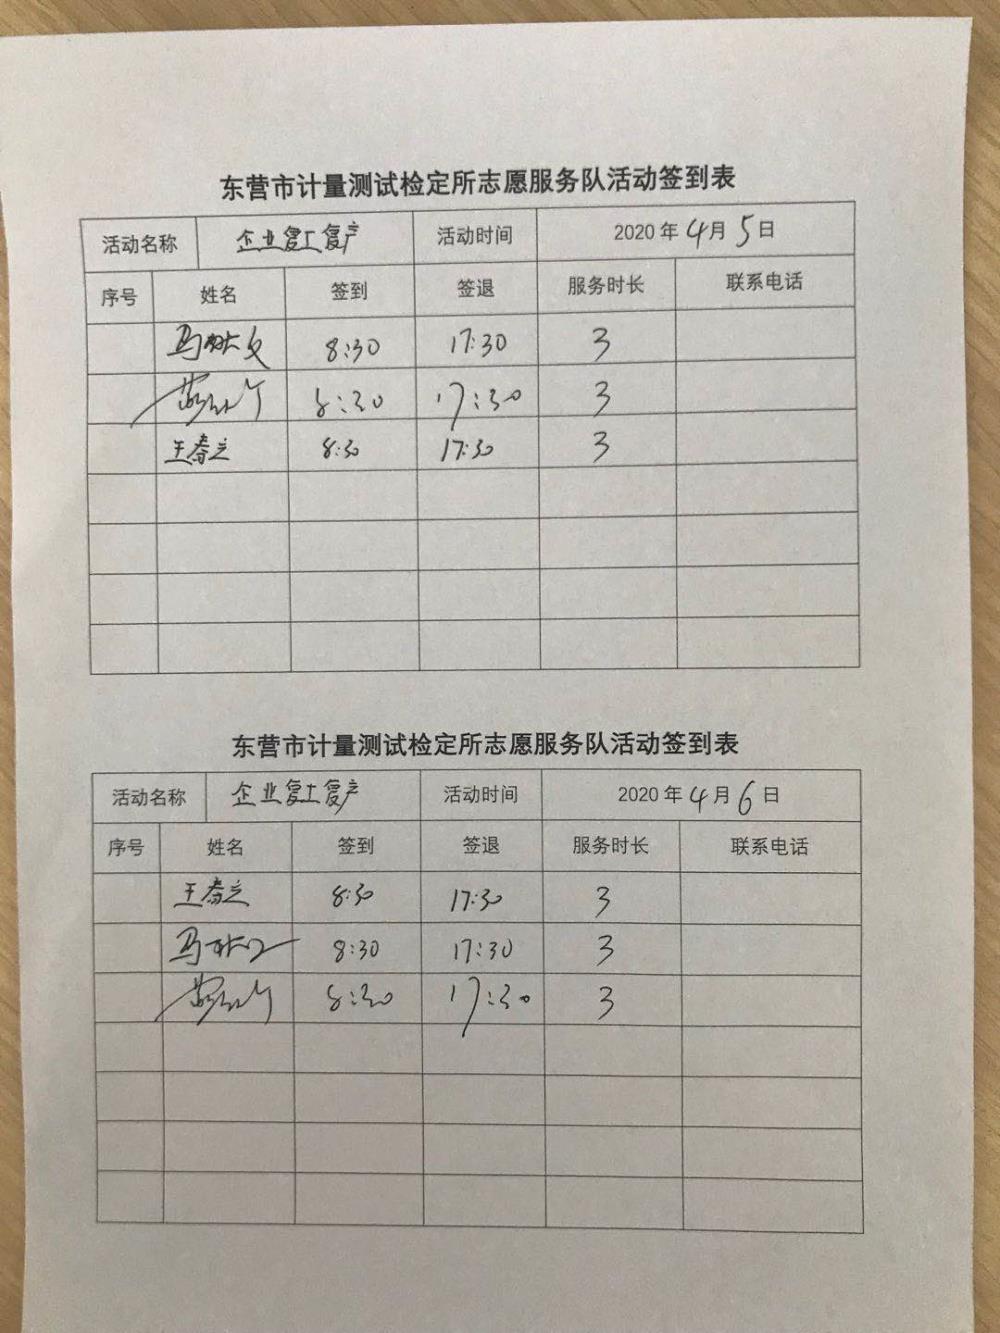 东营市计量测试检定所志愿服务队活动签到表
活动名称 企业复工复产 活动时间 2020年4月5日
序号 姓名 签到 签退 服务时长 联系电话
马 8:30 17:30 3
8:30 17:30 3
王春立 8:30 17:30 3
东营市计量测试检定所志愿服务队活动签到表
活动名称 企业复工复产 活动时间 2020年4月6日
序号 姓名 签到 签退 服务时长 联系电话
王春立 8:30 17:30 3
马 8:30 17:30 3
8:30 17:30 3